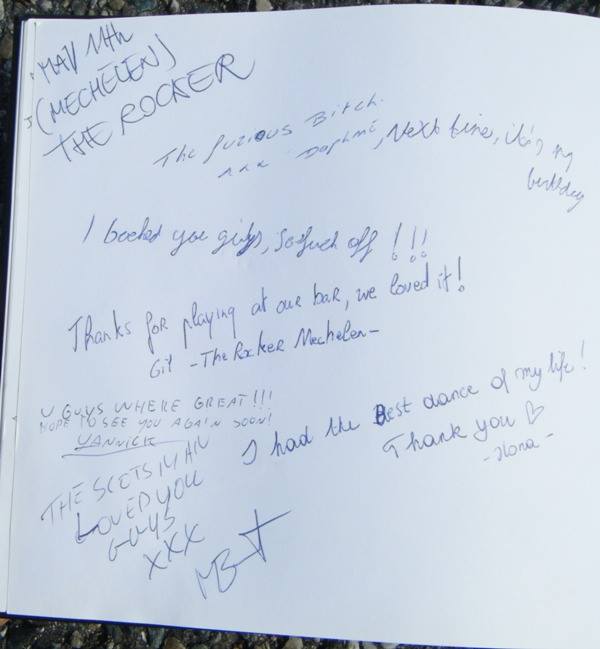 (MECHELEN)
THE ROCKER
The furious Bitch.
xxx Daphné, Next time, it's my
birthday
I booked you guys, so fuck off!!!
Thanks for playing at our bar, we loved it!
Git -The Rocker Mechelen-
U GUYS WHERE GREAT!!!
HOPE TO SEE YOU AGAIN SOON!
YANNICK
I had the Best dance of my life!
Thank you ♡
-Ilona-
THE SCOTSMAN
LOVED YOU
GUYS
XXX